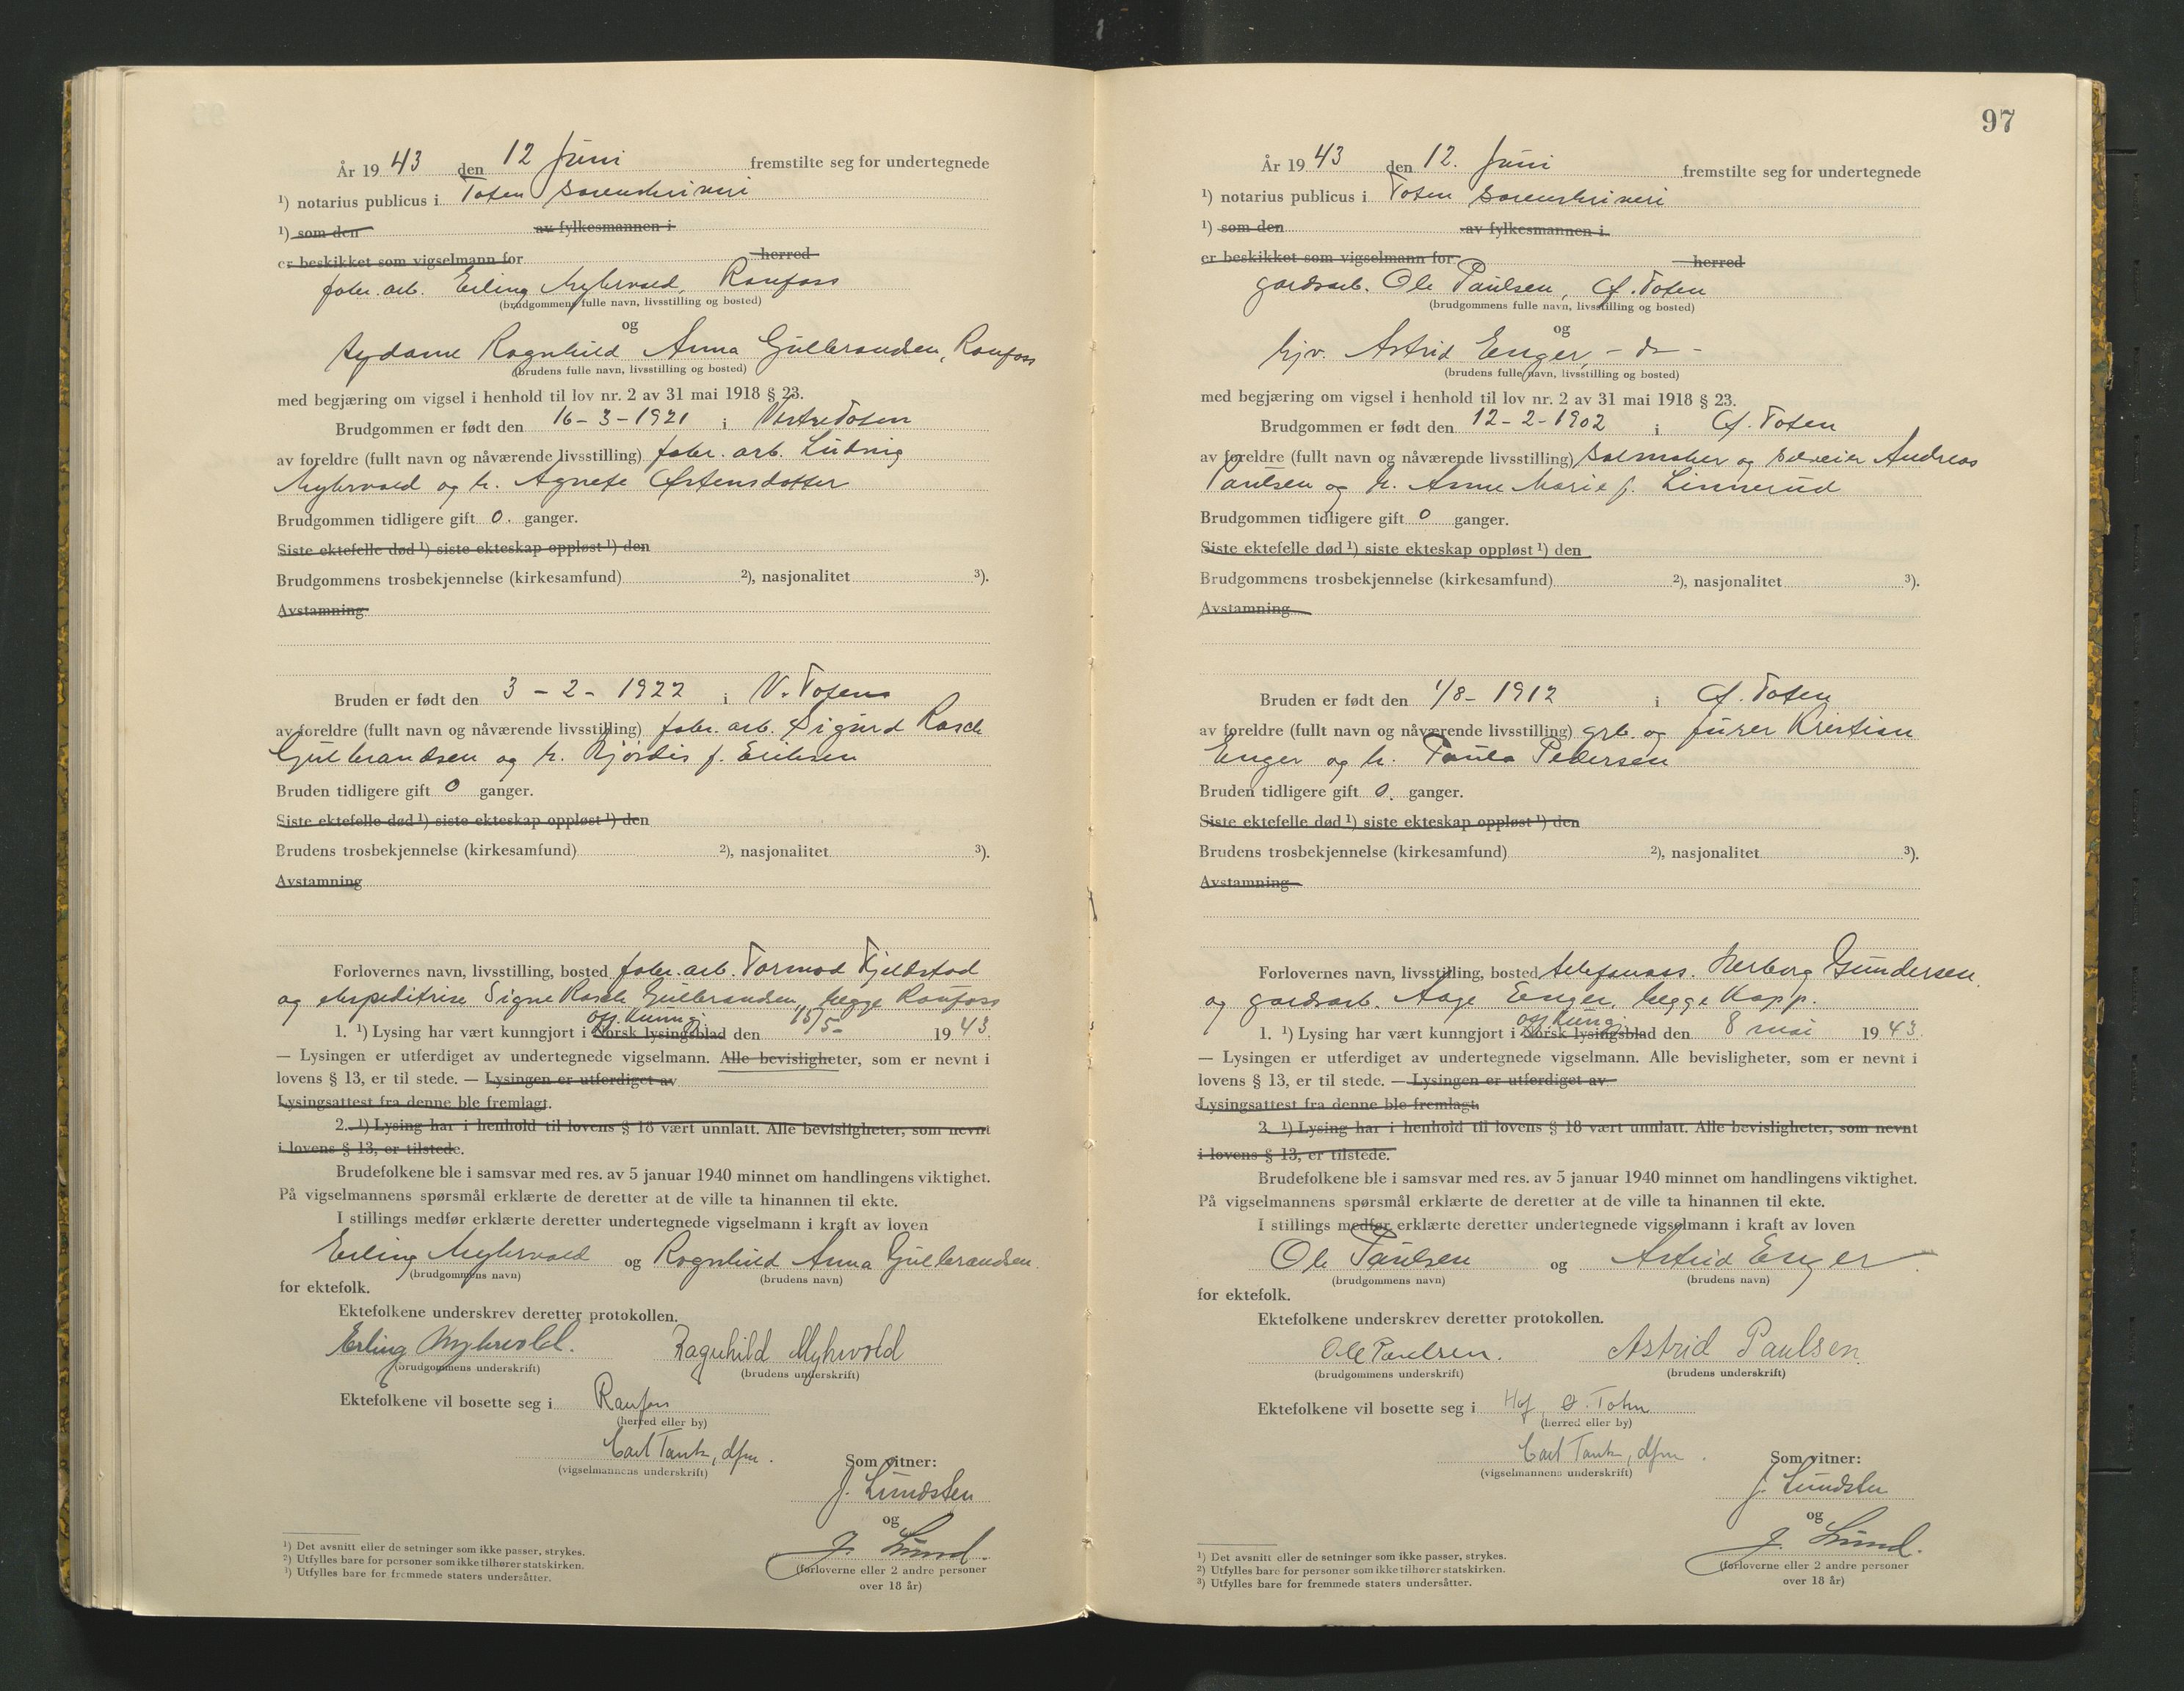 År 1943 den 12 Juni fremstilte seg for undertegnede
¹) notarius publicus i Toten sorenskriveri
¹) som den av fylkesmannen i
er beskikket som vigselmann for herred
fabr. arb. Erling Myhrvold, Raufoss
(brudgommens fulle navn, livsstilling og bosted)
og
sydame Ragnhild Anna Gulbrandsen, Raufoss
(brudens fulle navn, livsstilling og bosted)
med begjæring om vigsel i henhold til lov nr. 2 av 31 mai 1918 § 23.
Brudgommen er født den 16-3-1921 i Vestre Toten
av foreldre (fullt navn og nåværende livsstilling) fabr. arb. Ludvig
Myhrvold og h. Agnete Østensdotter
Brudgommen tidligere gift 0. ganger.
Siste ektefelle død ¹) siste ekteskap oppløst ¹) den
Brudgommens trosbekjennelse (kirkesamfund) ²), nasjonalitet ³).
Avstamning
Bruden er født den 3 - 2 - 1922 i V. Toten
av foreldre (fullt navn og nåværende livsstilling) fabr. arb. Sigurd Rasch
Gulbrandsen og h. Hjørdis f. Eriksen
Bruden tidligere gift 0 ganger.
Siste ektefelle død ¹) siste ekteskap oppløst ¹) den
Brudens trosbekjennelse (kirkesamfund) ²), nasjonalitet ³).
Avstamning
Forlovernes navn, livsstilling, bosted fabr. arb. Tormod Fjeldstad
og ekspeditrise Signe Rasch Gulbrandsen, begge Raufoss
off. kunng.
1. ¹) Lysing har vært kunngjort i Norsk lysingsblad den 15/5- 1943.
— Lysingen er utferdiget av undertegnede vigselmann. Alle bevisligheter, som er nevnt i
lovens § 13, er til stede. — Lysingen er utferdiget av
Lysingsattest fra denne ble fremlagt.
2. ¹) Lysing har i henhold til lovens § 18 vært unnlatt. Alle bevisligheter, som nevnt
i lovens § 13, er tilstede.
Brudefolkene ble i samsvar med res. av 5 januar 1940 minnet om handlingens viktighet.
På vigselmannens spørsmål erklærte de deretter at de ville ta hinannen til ekte.
I stillings medfør erklærte deretter undertegnede vigselmann i kraft av loven
Erling Myhrvold og Ragnhild Anna Gulbrandsen.
(brudgommens navn) (brudens navn)
for ektefolk.
Ektefolkene underskrev deretter protokollen.
Erling Myhrvold. Ragnhild Myhrvold
(brudgommens underskrift) (brudens underskrift)
Ektefolkene vil bosette seg i Raufoss
(herred eller by)
Carl Tank, dfm.
(vigselmannens underskrift)
Som vitner:
J. Lundsten
og
J. Lund.
(forloverne eller 2 andre personer
over 18 år)
¹) Det avsnitt eller de setninger som ikke passer, strykes.
²) Utfylles bare for personer som ikke tilhører statskirken.
³) Utfylles bare for fremmede staters undersåtter.
97
År 1943 den 12. Juni fremstilte seg for undertegnede
¹) notarius publicus i Toten sorenskriveri
¹) som den av fylkesmannen i
er beskikket som vigselmann for herred
gardsarb. Ole Paulsen, Ø. Toten
(brudgommens fulle navn, livsstilling og bosted)
og
hjv. Astrid Enger, - do -
(brudens fulle navn, livsstilling og bosted)
med begjæring om vigsel i henhold til lov nr. 2 av 31 mai 1918 § 23.
Brudgommen er født den 12-2-1902 i Ø. Toten
av foreldre (fullt navn og nåværende livsstilling) salmaker og selveier Andreas
Paulsen og h. Anne Marie f. Linnerud
Brudgommen tidligere gift 0 ganger.
Siste ektefelle død ¹) siste ekteskap oppløst ¹) den
Brudgommens trosbekjennelse (kirkesamfund) ²), nasjonalitet ³).
Avstamning
Bruden er født den 1/8- 1912 i Ø. Toten
av foreldre (fullt navn og nåværende livsstilling) grb. og furer Kristian
Enger og h. Paula Pedersen
Bruden tidligere gift 0. ganger.
Siste ektefelle død ¹) siste ekteskap oppløst ¹) den
Brudens trosbekjennelse (kirkesamfund) ²), nasjonalitet ³).
Avstamning
Forlovernes navn, livsstilling, bosted telefonass. Herborg Gundersen,
og gardsarb. Aage Enger, begge Kapp.
off. kung.
1. ¹) Lysing har vært kunngjort i Norsk lysingsblad den 8 mai 1943.
— Lysingen er utferdiget av undertegnede vigselmann. Alle bevisligheter, som er nevnt i
lovens § 13, er til stede. — Lysingen er utferdiget av
Lysingsattest fra denne ble fremlagt.
2. ¹) Lysing har i henhold til lovens § 18 vært unnlatt. Alle bevisligheter, som nevnt
i lovens § 13, er tilstede.
Brudefolkene ble i samsvar med res. av 5 januar 1940 minnet om handlingens viktighet.
På vigselmannens spørsmål erklærte de deretter at de ville ta hinannen til ekte.
I stillings medfør erklærte deretter undertegnede vigselmann i kraft av loven
Ole Paulsen og Astrid Enger.
(brudgommens navn) (brudens navn)
for ektefolk.
Ektefolkene underskrev deretter protokollen.
Ole Paulsen. Astrid Paulsen.
(brudgommens underskrift) (brudens underskrift)
Ektefolkene vil bosette seg i Hof, Ø. Toten
(herred eller by)
Carl Tank, dfm.
(vigselmannens underskrift)
Som vitner:
J. Lundsten
og
J. Lund.
(forloverne eller 2 andre personer
over 18 år)
¹) Det avsnitt eller de setninger som ikke passer, strykes.
²) Utfylles bare for personer som ikke tilhører statskirken.
³) Utfylles bare for fremmede staters undersåtter.